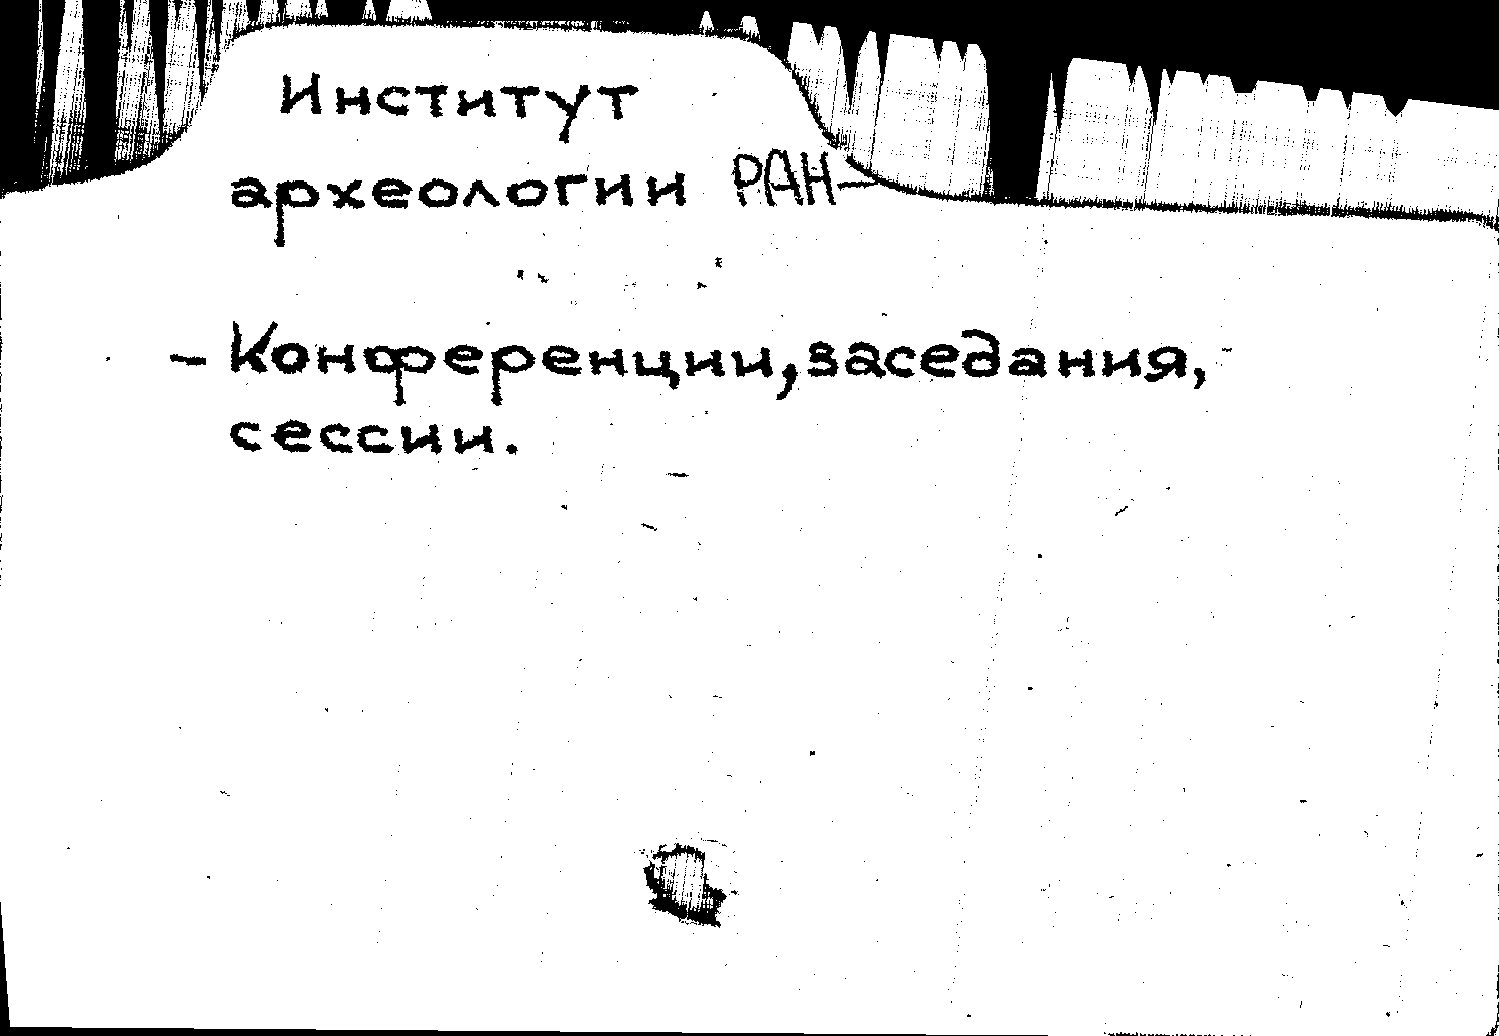 Институт
археологии РАН–
– Конференции, заседания,
сессии.